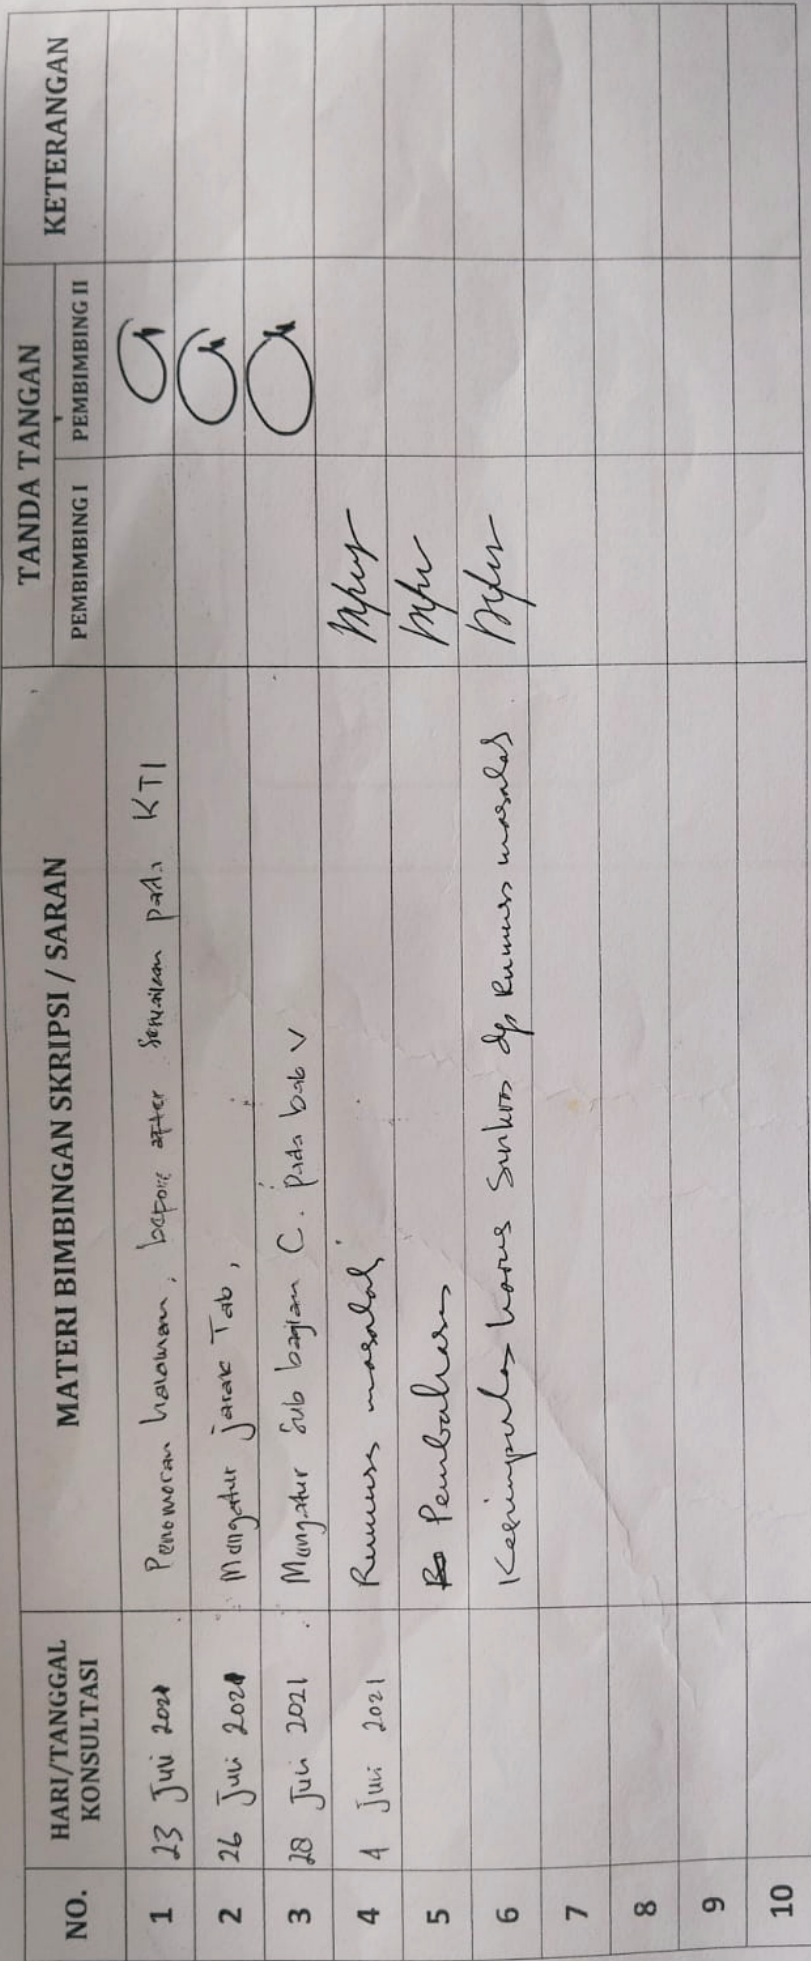 NO. HARI/TANGGAL KONSULTASI MATERI BIMBINGAN SKRIPSI / SARAN TANDA TANGAN KETERANGAN
PEMBIMBING I PEMBIMBING II
1 23 Juni 2021 Penomoran halaman, before after sesuaikan pada KTI
2 26 Juni 2021 Mengatur jarak Tab,
3 28 Juni 2021 Mengatur Sub bagian C. pada bab V
4 4 Juni 2021 Rumusan masalah
5 Pembahasan
6 Kesimpulan harus Sinkron dg Rumusan masalah
7
8
9
10